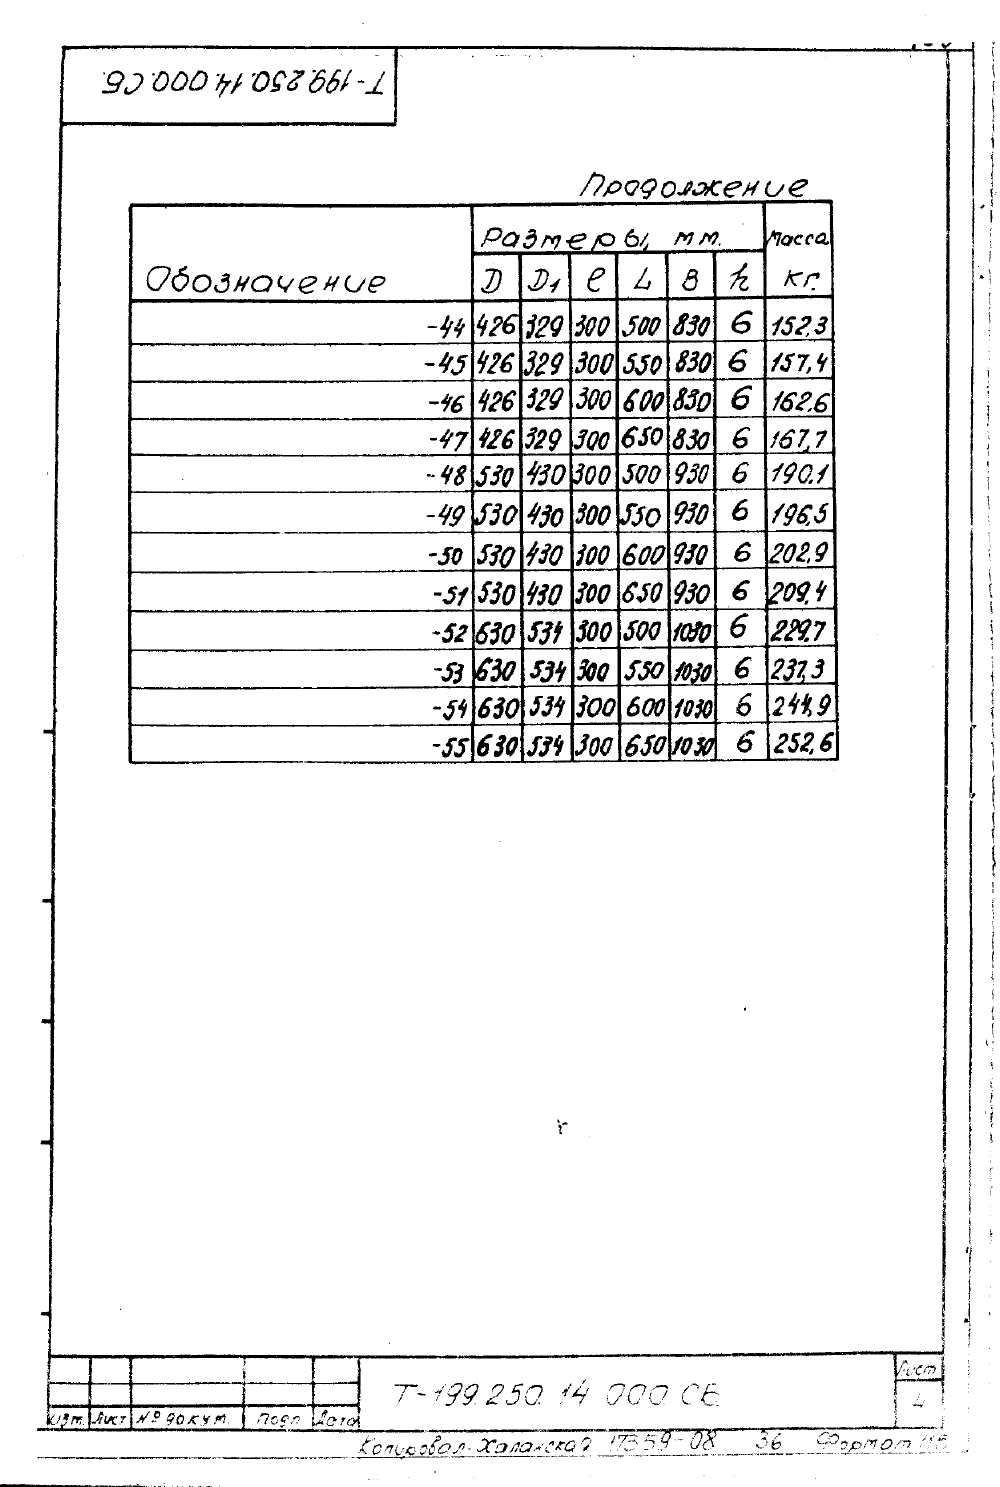 Т-199.250.14.000.СБ.
Продолжение
Обозначение Размеры, мм. Масса кг.
D D1 ℓ L B h
-44 426 329 300 500 830 6 152,3
-45 426 329 300 550 830 6 157,4
-46 426 329 300 600 830 6 162.6
-47 426 329 300 650 830 6 167,7
-48 530 430 300 500 930 6 190.1
-49 530 430 300 550 930 6 196,5
-50 530 430 300 600 930 6 202,9
-51 530 430 300 650 930 6 209,4
-52 630 534 300 500 1030 6 229,7
-53 630 534 300 550 1030 6 237,3
-54 630 534 300 600 1030 6 244,9
-55 630 534 300 650 1030 6 252,6
Т-199.250.14 000 СБ
Лист
4
Изм. Лист № докум. Подп Дата
Копировал- 17359-08 36 Формат